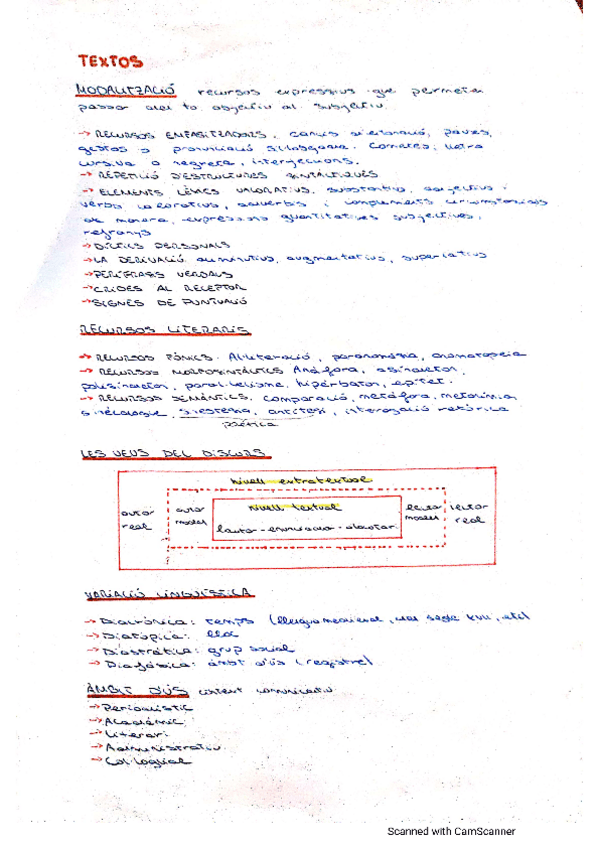 TEXTOS
MODALITZACIÓ recursos expressius que permeten
passar del to objectiu al subjectiu.
→ RECURSOS EMFASITZADORS, canvis d'entonació, pauses,
gestos o pronunciació sil·labejada. Cometes, lletra
cursiva o negreta, interjeccions.
→ REPETICIÓ D'ESTRUCTURES SINTÀCTIQUES
→ ELEMENTS LÈXICS VALORATIUS, substantius, adjectius i
verbs valoratius, adverbis i complements circumstancials
de manera, expressions quantitatives subjectives,
refranys
→ DÍCTICS PERSONALS
→ LA DERIVACIÓ diminutius, augmentatius, superlatius
→ PERÍFRASIS VERBALS
→ CRIDES AL RECEPTOR
→ SIGNES DE PUNTUACIÓ
RECURSOS LITERARIS
→ RECURSOS FÒNICS. Al·literació, paronomàsia, onomatopeia
→ RECURSOS MORFOSINTÀCTICS Anàfora, asíndeton,
polisíndeton, paral·lelisme, hipèrbaton, epítet.
→ RECURSOS SEMÀNTICS, comparació, metàfora, metonímia
sinècdoque, sinestesia, antítesi, interrogació retòrica
poètica
LES VEUS DEL DISCURS
nivell extratextual
autor real
autor model
nivell textual
lector model
lector real
VARIACIÓ LINGÜÍSTICA
→ Diacrònica: temps (llengua medieval, del segle XVII, etc)
→ Diatòpica: lloc
→ Diastràtica: grup social
→ Diafàsica: àmbit d'ús (registre)
ÀMBIT D'ÚS context comunicatiu
→ Periodístic
→ Acadèmic
→ Literari
→ Administratiu
→ Col·loquial
Scanned with CamScanner